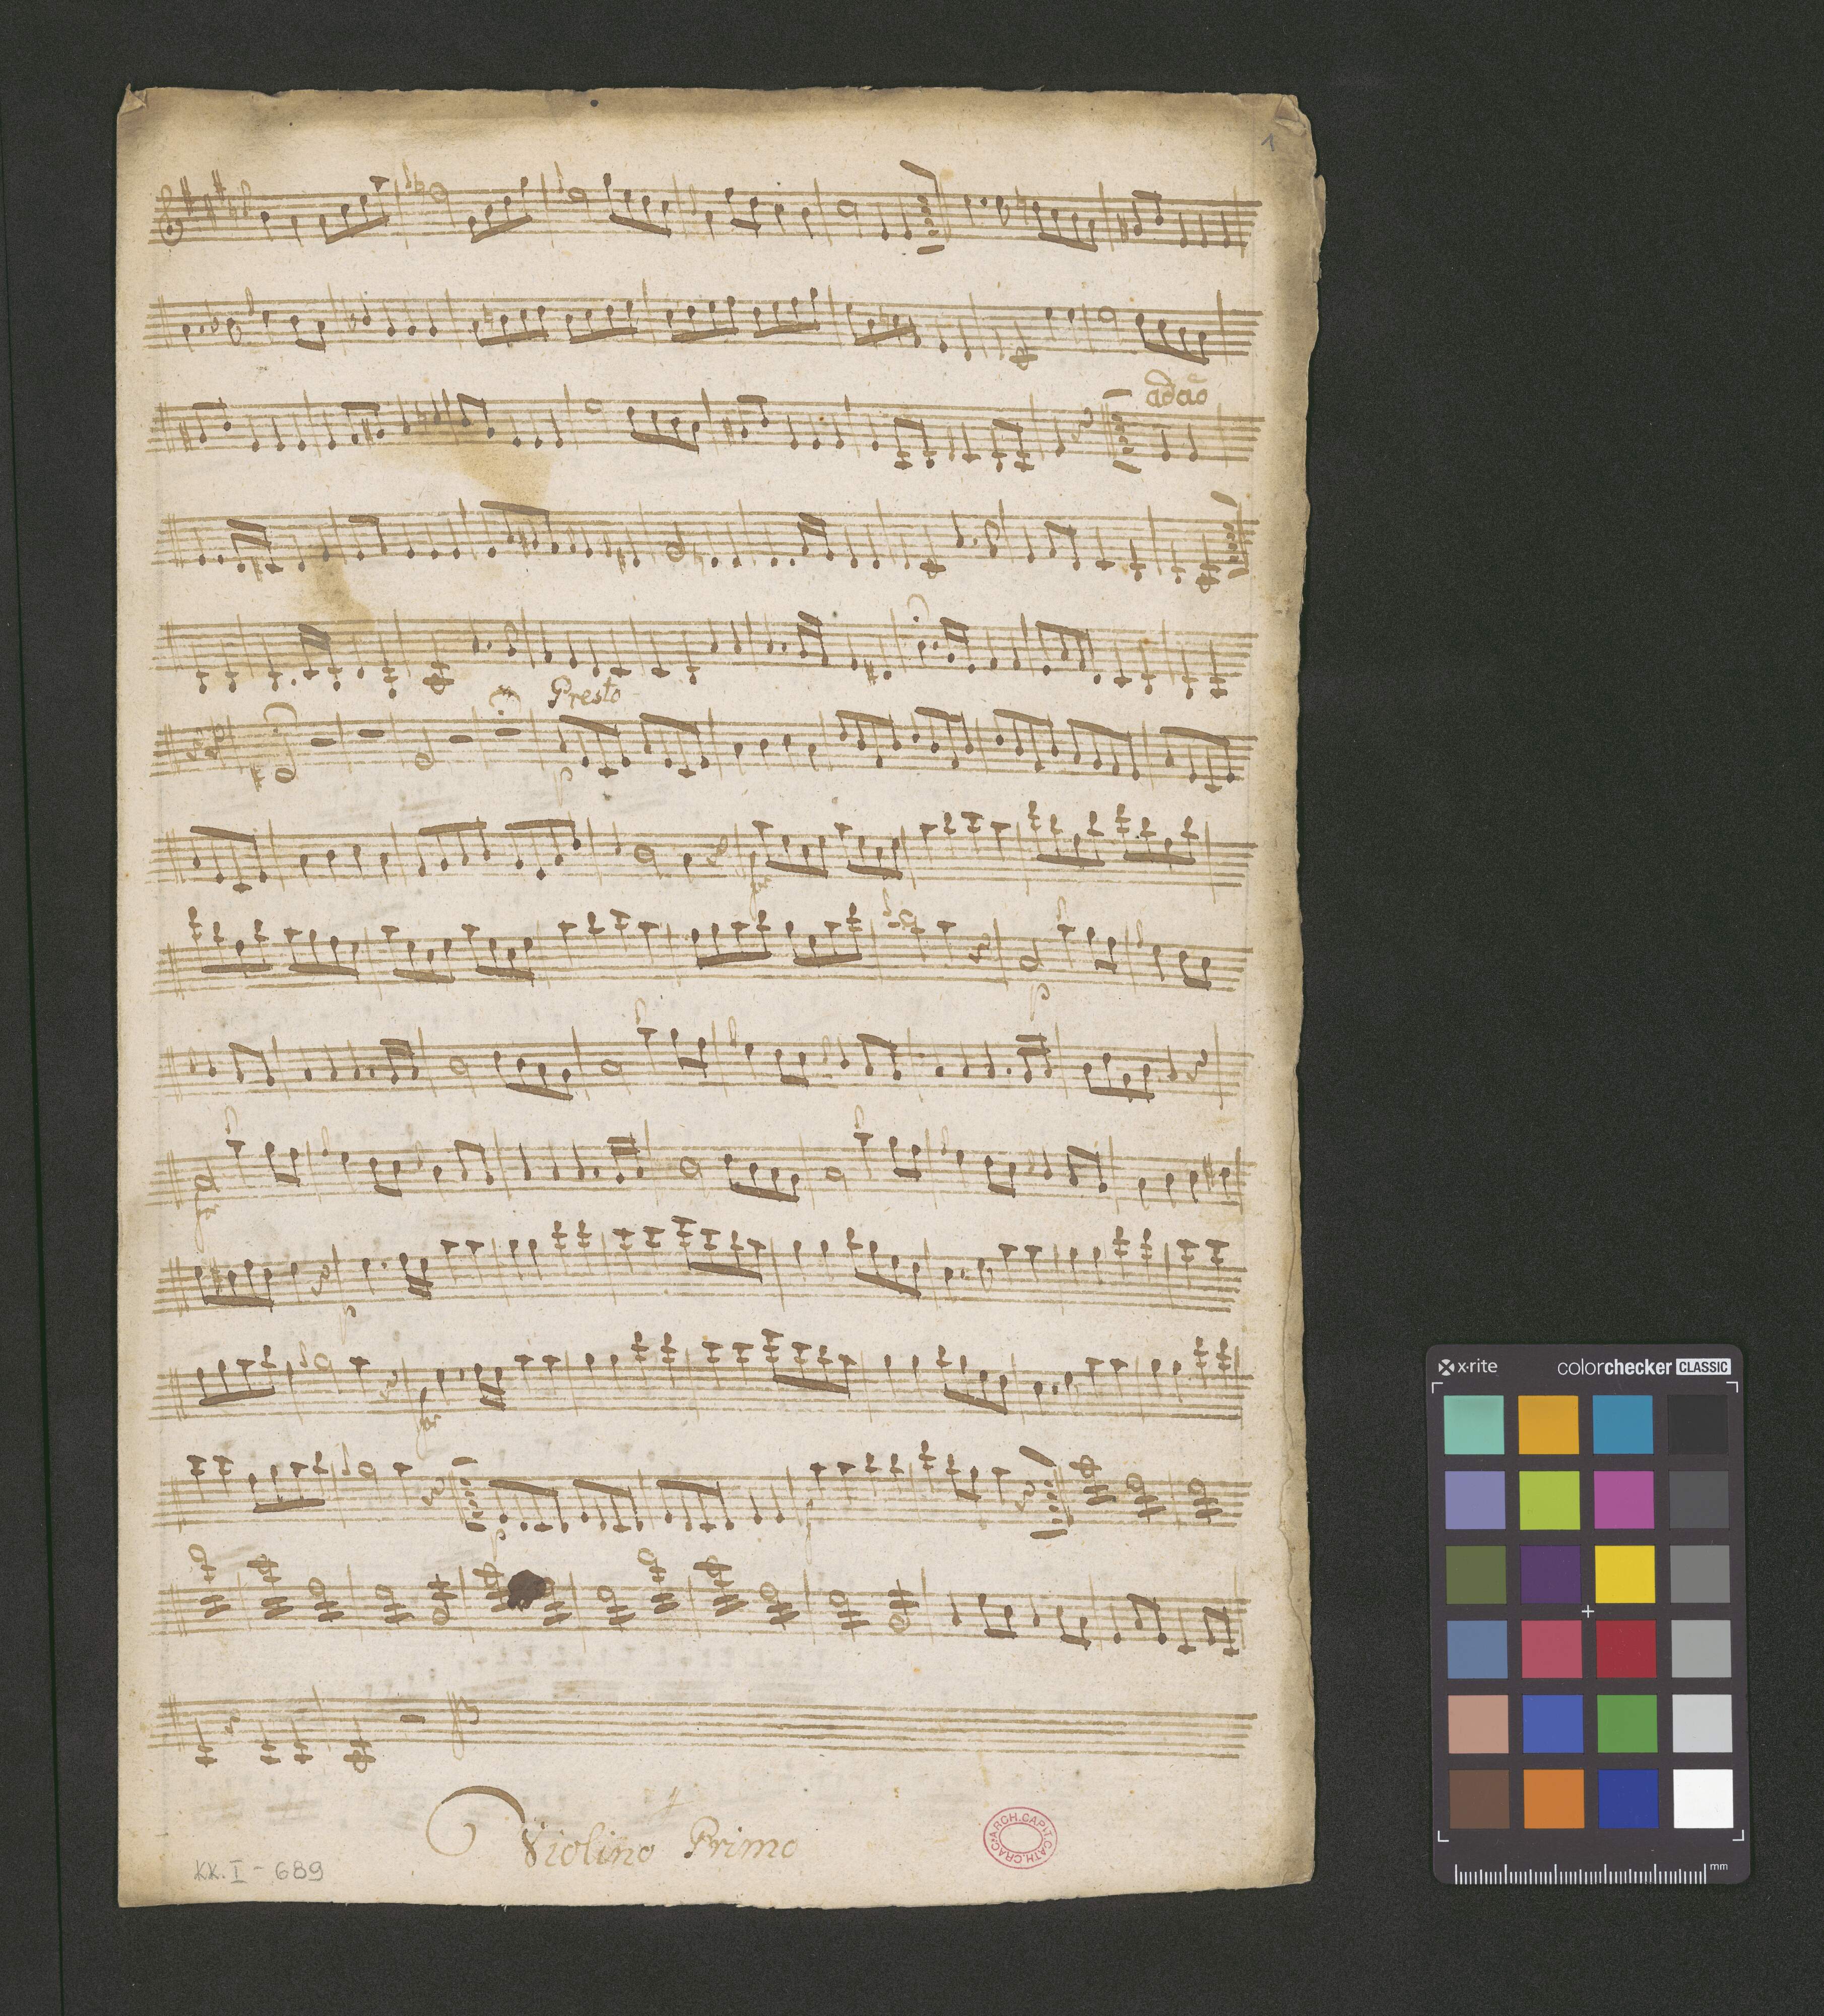 1
adāo
Presto
p
for
p
for
p
for
p
Violino Primo
KK. I - 689
ARCH. CAPIT. CATH. CRAC
x-rite colorchecker CLASSIC
mm